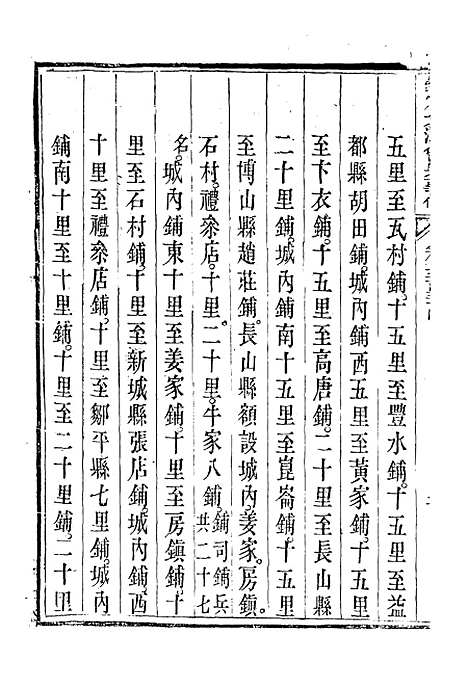 五里至瓦村鋪。十五里至豐水鋪。十五里至益
都縣胡田鋪。城內鋪西五里至黃家鋪。十五里
至卞衣鋪。十五里至高唐鋪。二十里至長山縣
二十里鋪。城內鋪南十五里至崑崙鋪。十五里
至博山縣趙莊鋪。長山縣額設城內。姜家。房鎮。
石村。禮叅店。十里。二十里。牛家八鋪。鋪司鋪兵共二十七
名。城內鋪東十里至姜家鋪。十里至房鎮鋪。十
里至石村鋪。十里至新城縣張店鋪。城內鋪西
十里至禮叅店鋪。十里至鄒平縣七里鋪。城內
鋪南十里至十里鋪。十里至二十里鋪。二十里